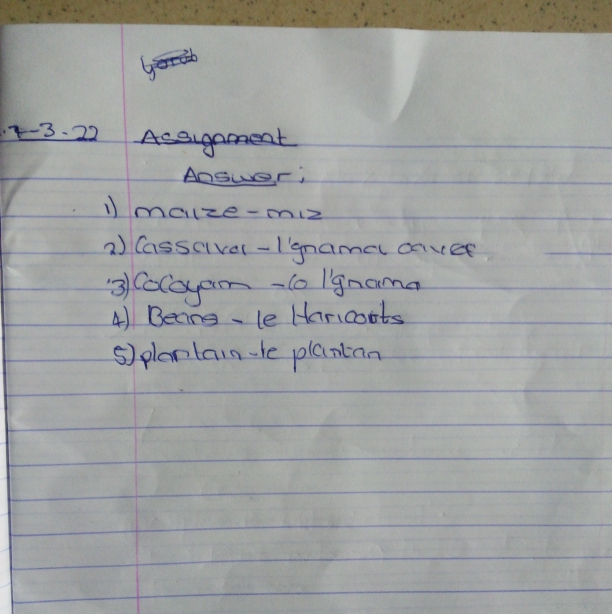 7-3-22 Assignment
Answer;
1) maize - miz
2) Cassava - l'gnama
3) Cocoyam - l'gnama
4) Beans - le Haricoots
5) plantain - le plantan